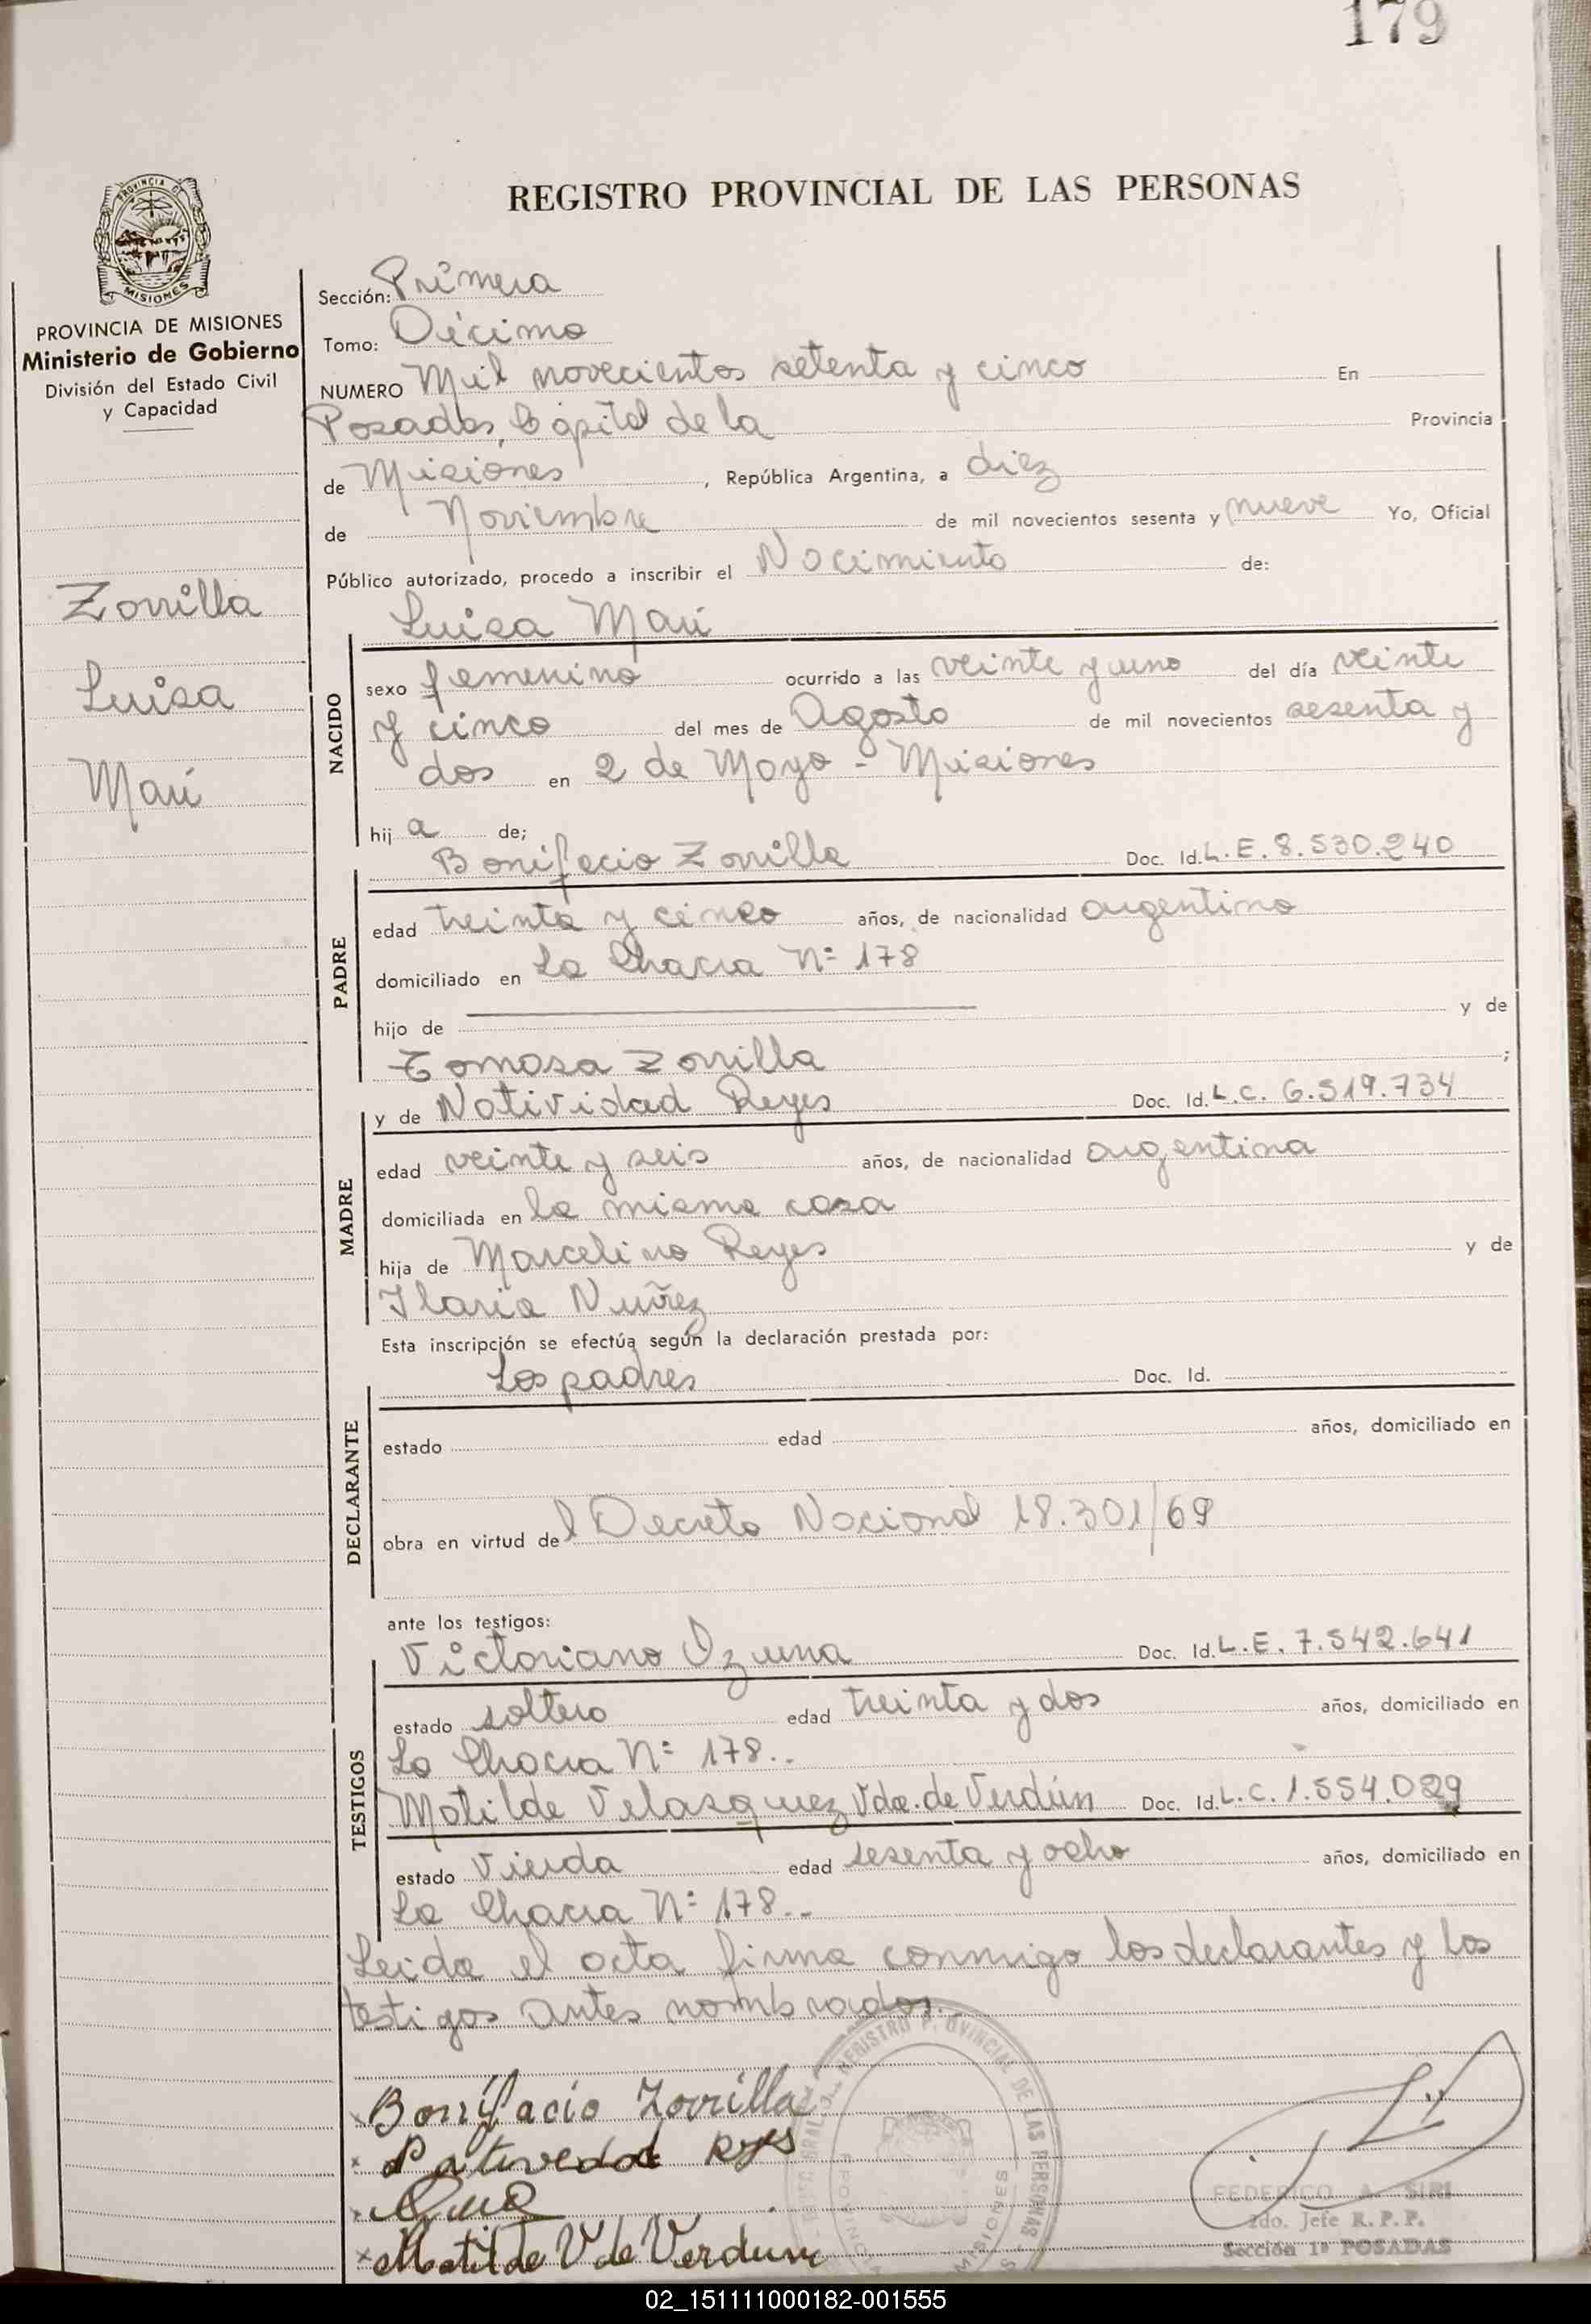 179
REGISTRO PROVINCIAL DE LAS PERSONAS
PROVINCIA DE MISIONES
Ministerio de Gobierno
División del Estado Civil
y Capacidad
Zorrilla
Luisa
Mari
Sección: Primera
Tomo: Décimo
NUMERO Mil novecientos setenta y cinco En
Posadas, Capital de la Provincia
de Misiones, República Argentina, a diez
de Noviembre de mil novecientos sesenta y nueve Yo, Oficial
Público autorizado, procedo a inscribir el Nacimiento de:
Luisa Mari
NACIDO
sexo femenino ocurrido a las veinte y uno del día veinte
y cinco del mes de Agosto de mil novecientos sesenta y
dos en 2 de Mayo - Misiones
hij a de;
Bonifacio Zorrilla Doc. Id. L.E. 8.530.240
PADRE
edad treinta y cinco años, de nacionalidad argentino
domiciliado en La Chacra Nº 178
hijo de y de
Tomasa Zorrilla ;
y de Natividad Reyes Doc. Id. L.C. 6.519.734
MADRE
edad veinte y seis años, de nacionalidad argentina
domiciliada en la misma casa
hija de Marcelino Reyes y de
Ilaria Nuñez
Esta inscripción se efectúa según la declaración prestada por:
Los padres Doc. Id.
DECLARANTE
estado edad años, domiciliado en
obra en virtud del Decreto Nacional 18.301/69
ante los testigos:
Victoriano Ozuna Doc. Id. L.E. 7.542.641
TESTIGOS
estado soltero edad treinta y dos años, domiciliado en
La Chacra Nº 178..
Matilde Velasquez Vda. de Verdún Doc. Id. L.C. 1.554.029
estado Viuda edad sesenta y ocho años, domiciliado en
La Chacra Nº 178..
Leida el acta firma conmigo los declarantes y los
testigos antes nombrados.
Bonifacio Zorrilla
Natividad Reyes
Matilde V de Verdun
REGISTRO PROVINCIAL DE LAS PERSONAS
MISIONES
FEDERICO A. SIRI
2do. Jefe R. P. P.
Sección 1ª POSADAS
02_151111000182-001555